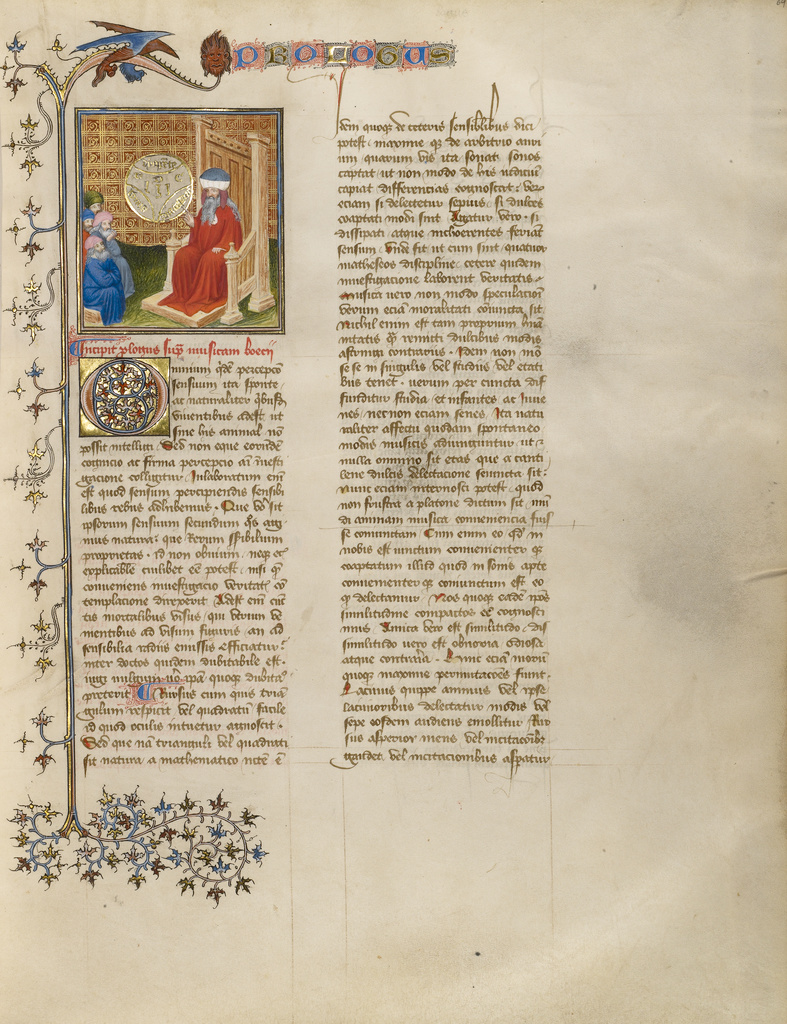 PROLOGUS
Incipit plogus sup musicam boecii
Omnium qde percepcio
sensuum ita sponte
ac naturaliter qbusd
viventibus adest ut
sine his animal no
possit intelligi. Sed non eque eorumde
cognicio ac firma percepcio ai investi
gacione colligitur. Inlaboratum eni
est quod sensum percipiendis sensibi
libus rebus adhibemus. Que vo sit
ipsorum sensuum secundum qs agi
mus natura: que rerum ssibilium
proprietas. id non obvium. neqz
explicabile cuilibet ee potest. nisi q
conveniens investigacio veritatis co
templacione direxerit Adest eni cuc
tis mortalibus visus, qui utrum ve
nientibus ad visum figuris an ad
sensibilia radiis emissis efficiatur.
inter doctos quidem dubitabile est.
vulgum vo ipam quoqz dubita
preterit Rursus cum quis tria
gulum respicit vel quadratum facile
id quod oculis intuetur agnoscit.
Sed que na trianguli vel quadrati
sit natura a mathematico
Idem quoqz de ceteris sensibilibus dici
potest. maxime qz de arbitrio auri
um quarum vis ita sonos
captat ut non modo de his iudicium
capiat differencias cognoscat: ver
eciam si delectetur sepius, si dulces
coaptati modi sint Angatur vero. si
dissipati atque incoherentes feriant
sensum. Unde fit ut cum sint quatuor
matheseos discipline. cetere quidem
investigacione laborent veritatis.
Musica vero non modo speculacioni
verum eciam moralitati coniuncta sit.
Nichil enim est tam proprium huma
nitatis q remitti dulcibus modis
astringi contrariis. Idem non mo
se se in singulis vel studiis vel etati
bus tenet. verum per cuncta dif
funditur studia. et infantes ac iuve
nes, nec non eciam senes, Ita natu
raliter affectu quodam spontaneo
modis musicis adiunguntur. ut
nulla omnino sit etas que a canti
lene dulcis delectacione seiuncta sit.
Hinc eciam internosci potest. quod
non frustra a platone dictum sit. mu
di animam musica conveniencia fuis
se coniunctam. Cum enim eo qd in
nobis est iunctum convenienter qz
coaptatum illud quod in sonis apte
convenienter qz coniunctum est eo
qz delectamur. Nos quoqz eade ipos
similitudine compactos ee cognosci
mus. Amica vero est similitudo. dis
similitudo vero est odiosa
atque contraria. Hinc eciam moru
quoqz maxime permutacoes fiunt.
Lacivus quippe animus vel ipse
lacivioribus delectatur modis vel
sepe eosdem audiens emollitur Rur
sus asperior mens vel incitacioribz
gaudet vel incitacionibus aspatur